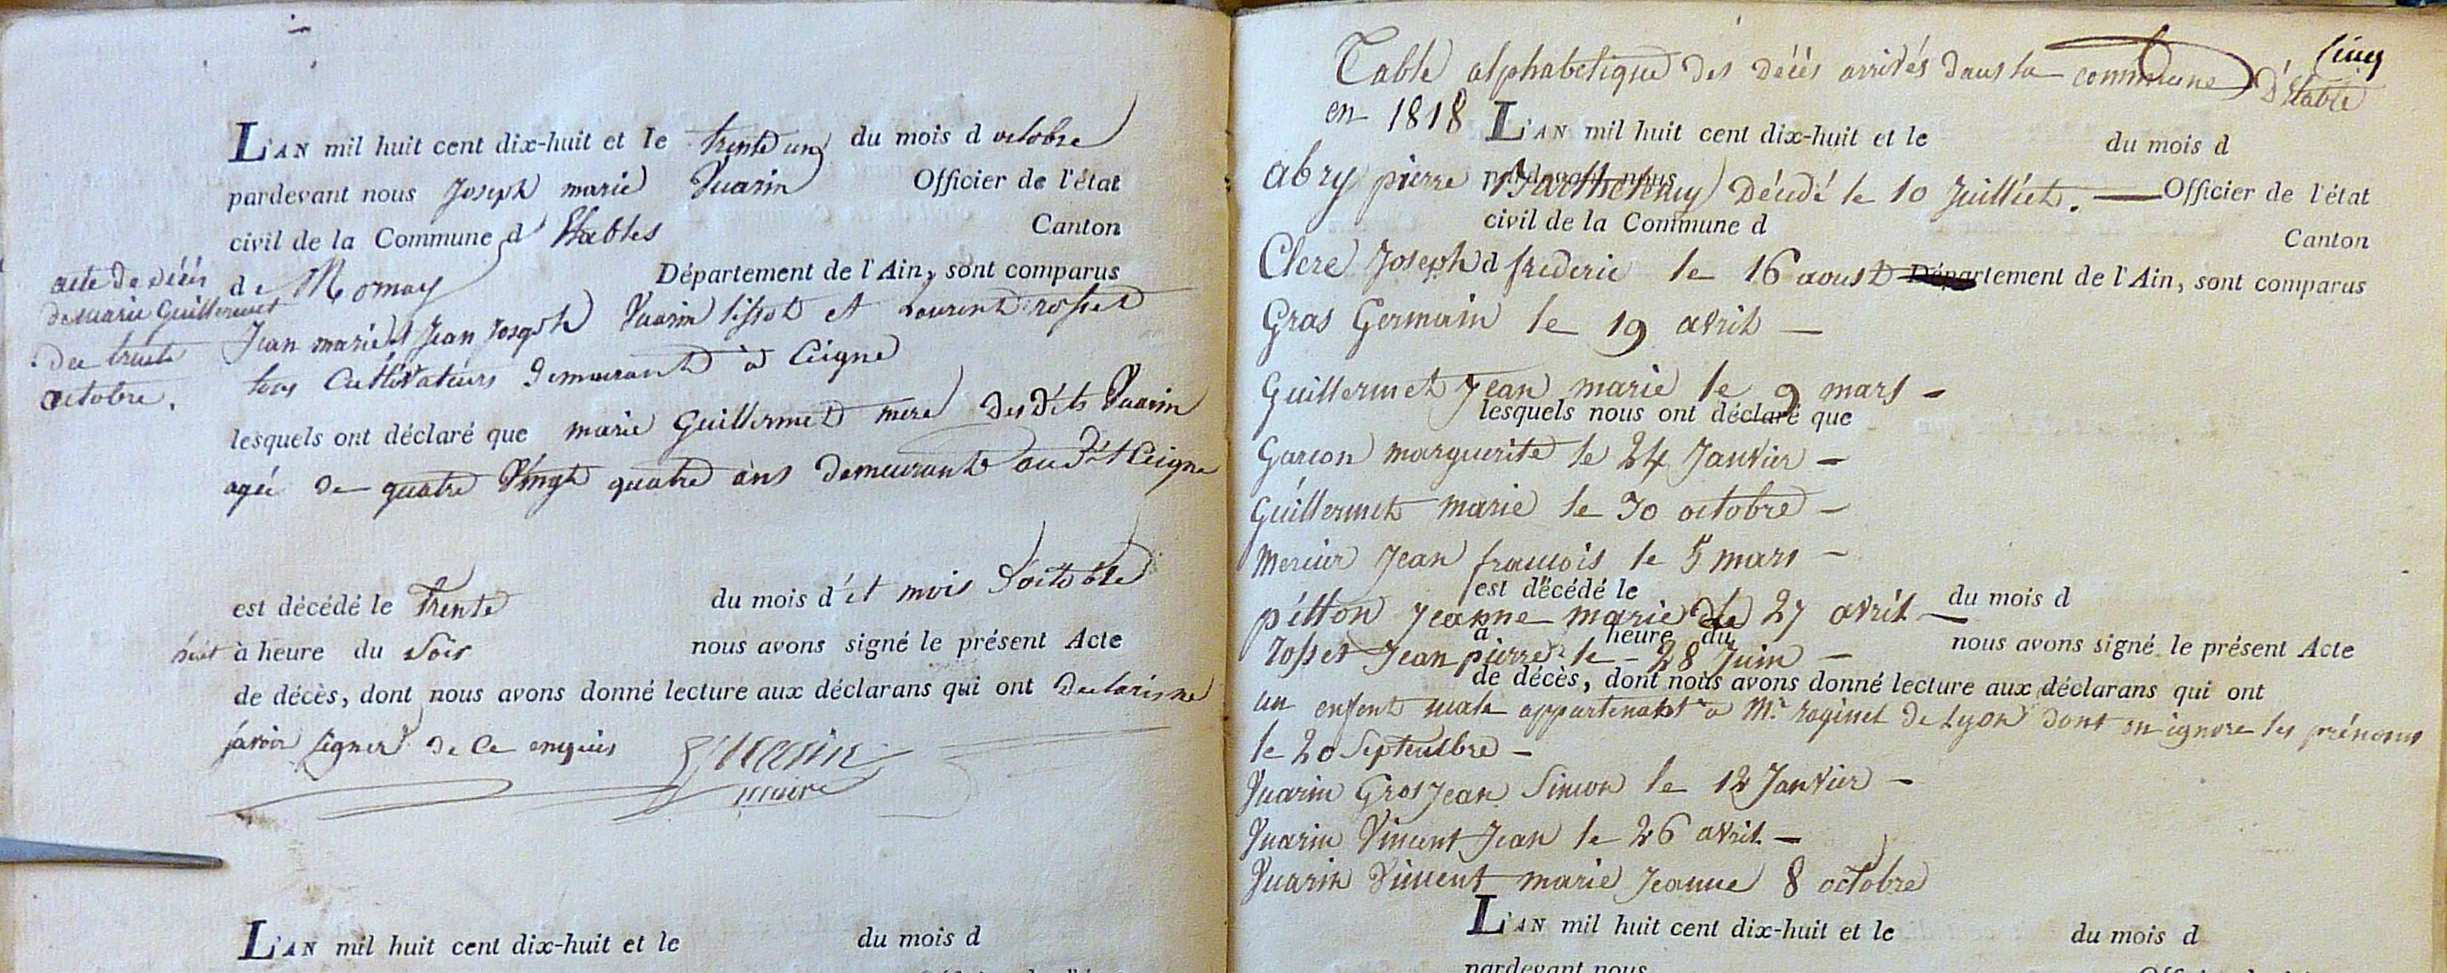 L'AN mil huit cent dix-huit et le trente un du mois d octobre
pardevant nous Joseph marie Vuarin Officier de l'état
civil de la Commune d'Etables Canton
de Nomay Département de l'Ain, sont comparus
Jean marie et Jean Joseph Vuarin tissot et Laurent rosset
tous Cultivateurs demeurant à Ceigne
lesquels ont déclaré que marie Guillermet mere des dits Vuarin
agée de quatre Vingt quatre ans demeurante au dit Ceigne
est décédé le trente du mois d'ét mois d'octobre
huit à heure du soir nous avons signé le présent Acte
de décès, dont nous avons donné lecture aux déclarans qui ont declaris ne
savoir signer de ce enquis Vuarin
maire
acte de décés
de marie Guillermet
du trente
octobre.
L'AN mil huit cent dix-huit et le du mois d
cinq
Table alphabetique des décès arrivés dans la commune D'Etable
en 1818 L'AN mil huit cent dix-huit et le du mois d
pardevant nous Officier de l'état
abry pierre Barthelemy Décédé le 10 Juillet. —
civil de la Commune d Canton
Clere Joseph frederic le 16 aoust Département de l'Ain, sont comparus
Gras Germain le 19 avril —
Guillermet Jean marie le 9 mars -
lesquels nous ont déclaré que
Garcon marguerite le 24 Janvier —
Guillermet marie le 30 octobre —
Mercier Jean francois le 5 mars —
est décédé le du mois d
pétton Jeanne marie le 27 avril —
à heure du nous avons signé le présent Acte
rosset Jean pierre le - 28 Juin —
de décès, dont nous avons donné lecture aux déclarans qui ont
un enfent male appartenant a Mr. roginel de Lyon dont on ignore les prénoms
le 20 Septembre —
Vuarin Gros Jean Simon le 12 Janvier —
Vuarin Vincent Jean le 26 avril —
Vuarin Vincent marie Jeanne 8 octobre
L'AN mil huit cent dix-huit et le du mois d
pardevant nous